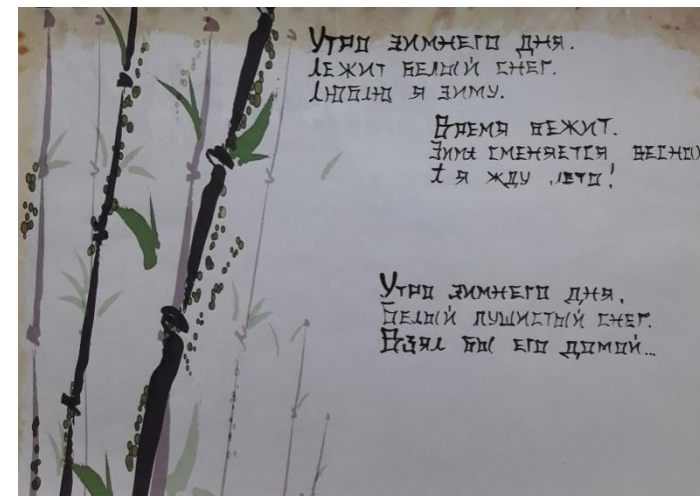 Утро зимнего дня.
Лежит белый снег.
Люблю я зиму.
Время бежит.
Зима сменяется весною
А я жду лето!
Утро зимнего дня,
Белый пушистый снег.
Взял бы его домой...